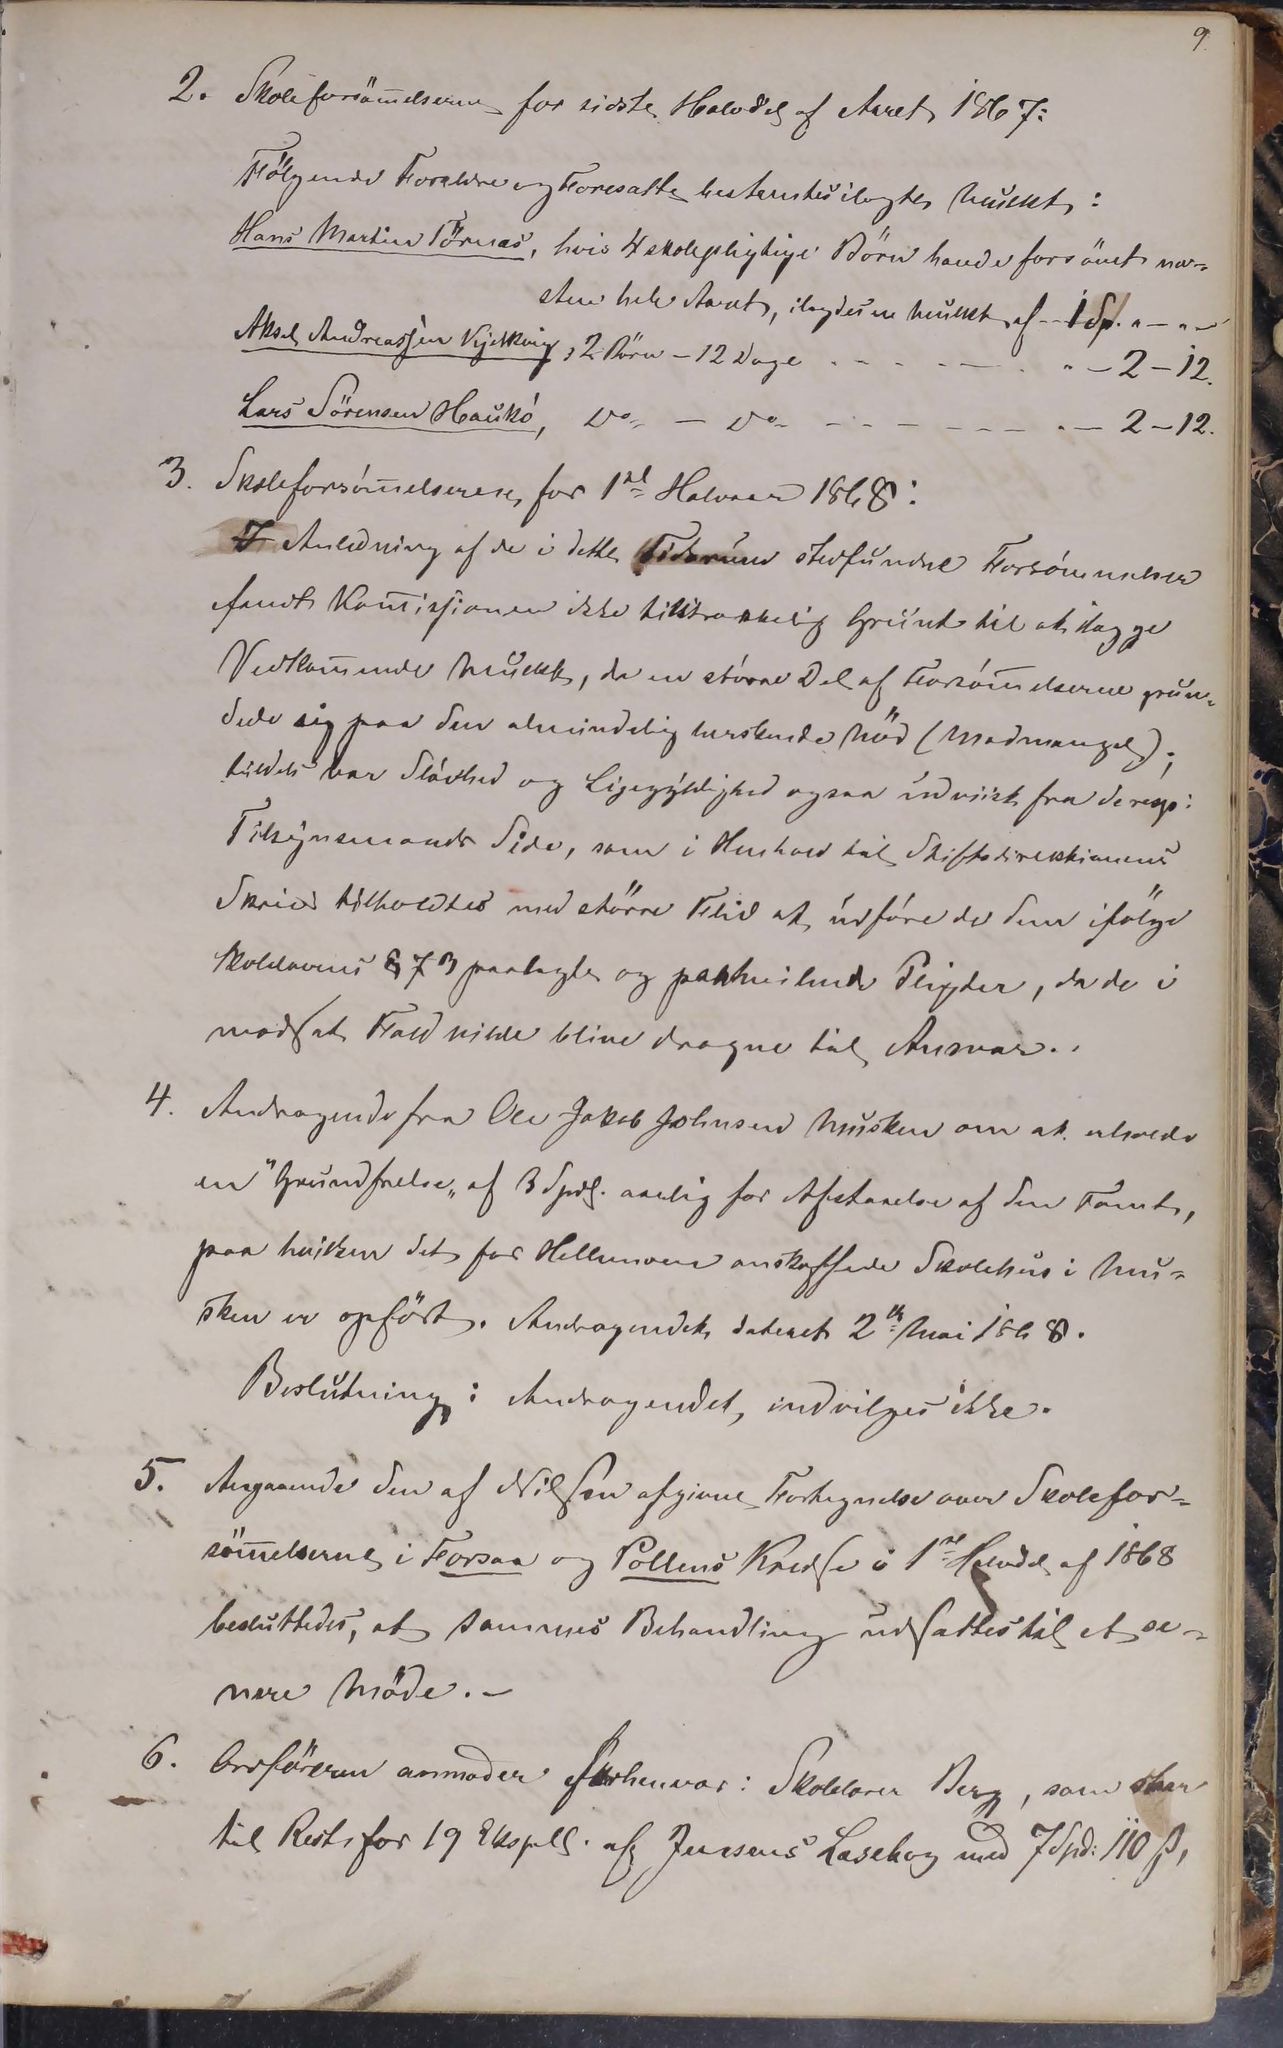 9.
2. Skoleforsömelserne for sidste Halvdel af Aaret 1867:
Fölgende Foreldre og Foresatte bestemtes ilagte Mulkt:
Hans Martin Törnæs, hvis 4 skolepligtige Börn havde forsömt næ-
sten hele Aaret, ilagdes en Mulkt af - 1 Sp. " - " -
Aksel Andreassen Kjelkvig, 2 Börn - 12 Dage - - - - " - 2 - 12.
Lars Sörensen Haukö, Do - Do - - - - - " - 2 - 12.
3. Skoleforsömelserne for 1ste Halvaar 1868:
I Anledning af de i dette Tidsrum stedfundne Forsömmelser
fandt Komissionen ikke tilstrækkelig Grund til at ilægge
Vedkomende Mulkt, da en större Del af Forsömelserne grun-
dede sig paa den almindelig herskende Nöd (Madmangel);
tildels var Slövhed og Ligegyldighed ogsaa udviist fra de resp:
Tilsynsmænds Side, som i Henhold til Stiftsdirektionens
Skriv tilholdtes med större Flid at udföre de dem ifölge
Skolelovens § 73 paalagte og paahvilende Pligter, da de i
modsat Fald vilde blive dragne til Ansvar..
4. Andragende fra Ole Jakob Johnsen Musken om at erholde
en "Grundfrelse" af 3 Spdl. aarlig for Afstaaelse af den Tomt,
paa hvilken det for Hellemoen anskaffede Skolehus i Mu-
sken er opfört. Andragendet dateret 2den Mai 1868.
Beslutning: Andragendet indvilges ikke.
5. Angaaende den af Nilsen afgivne Fortegnelse over Skolefor-
sömelserne i Forsaa og Pollens Kredse i 1ste Halvdel af 1868
besluttedes, at sammes Behandling udsattes til et se-
nere Möde. -
6. Ordföreren anmoder Skolelærer Berg, som staar
til Rest for 19 Ekspll. af Jensens Læsebog med 7 Spd: 110 ß,